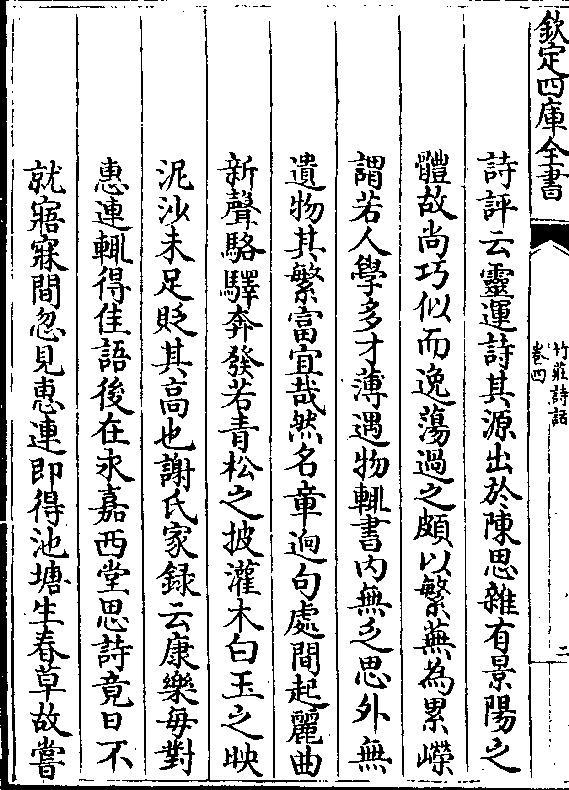 欽定四庫全書
竹莊詩話
卷四
二
詩評云靈運詩其源出於陳思雜有景陽之
體故尚巧似而逸蕩過之頗以繁蕪為累嶸
謂若人學多才薄遇物輙書内無乏思外無
遺物其繁富宜哉然名章逈句處間起麗曲
新聲駱驛奔發若青松之披灌木白玉之映
泥沙未足貶其高也謝氏家録云康樂每對
惠連輙得佳語後在永嘉西堂思詩竟日不
就寤寐間忽見惠連即得池塘生春草故嘗